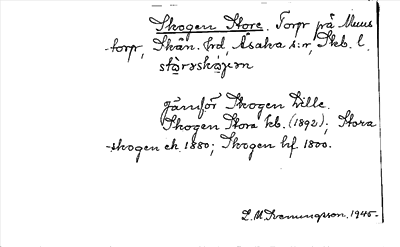 Skogen Store. Torp på Muus
torp, Skån. hd, Åsaka s:n, Skb. l.
stòrəskòγən
Jämför Skogen Lille.
Skogen Stora kb. (1892); Stora
skogen ek. 1880; Skogen hf. 1800.
1945.